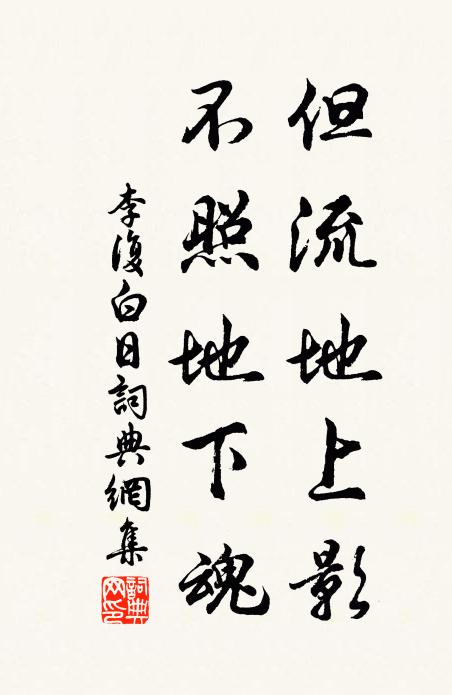 但流地上影
不照地下魂
李復白日詞典網集
詞典網印